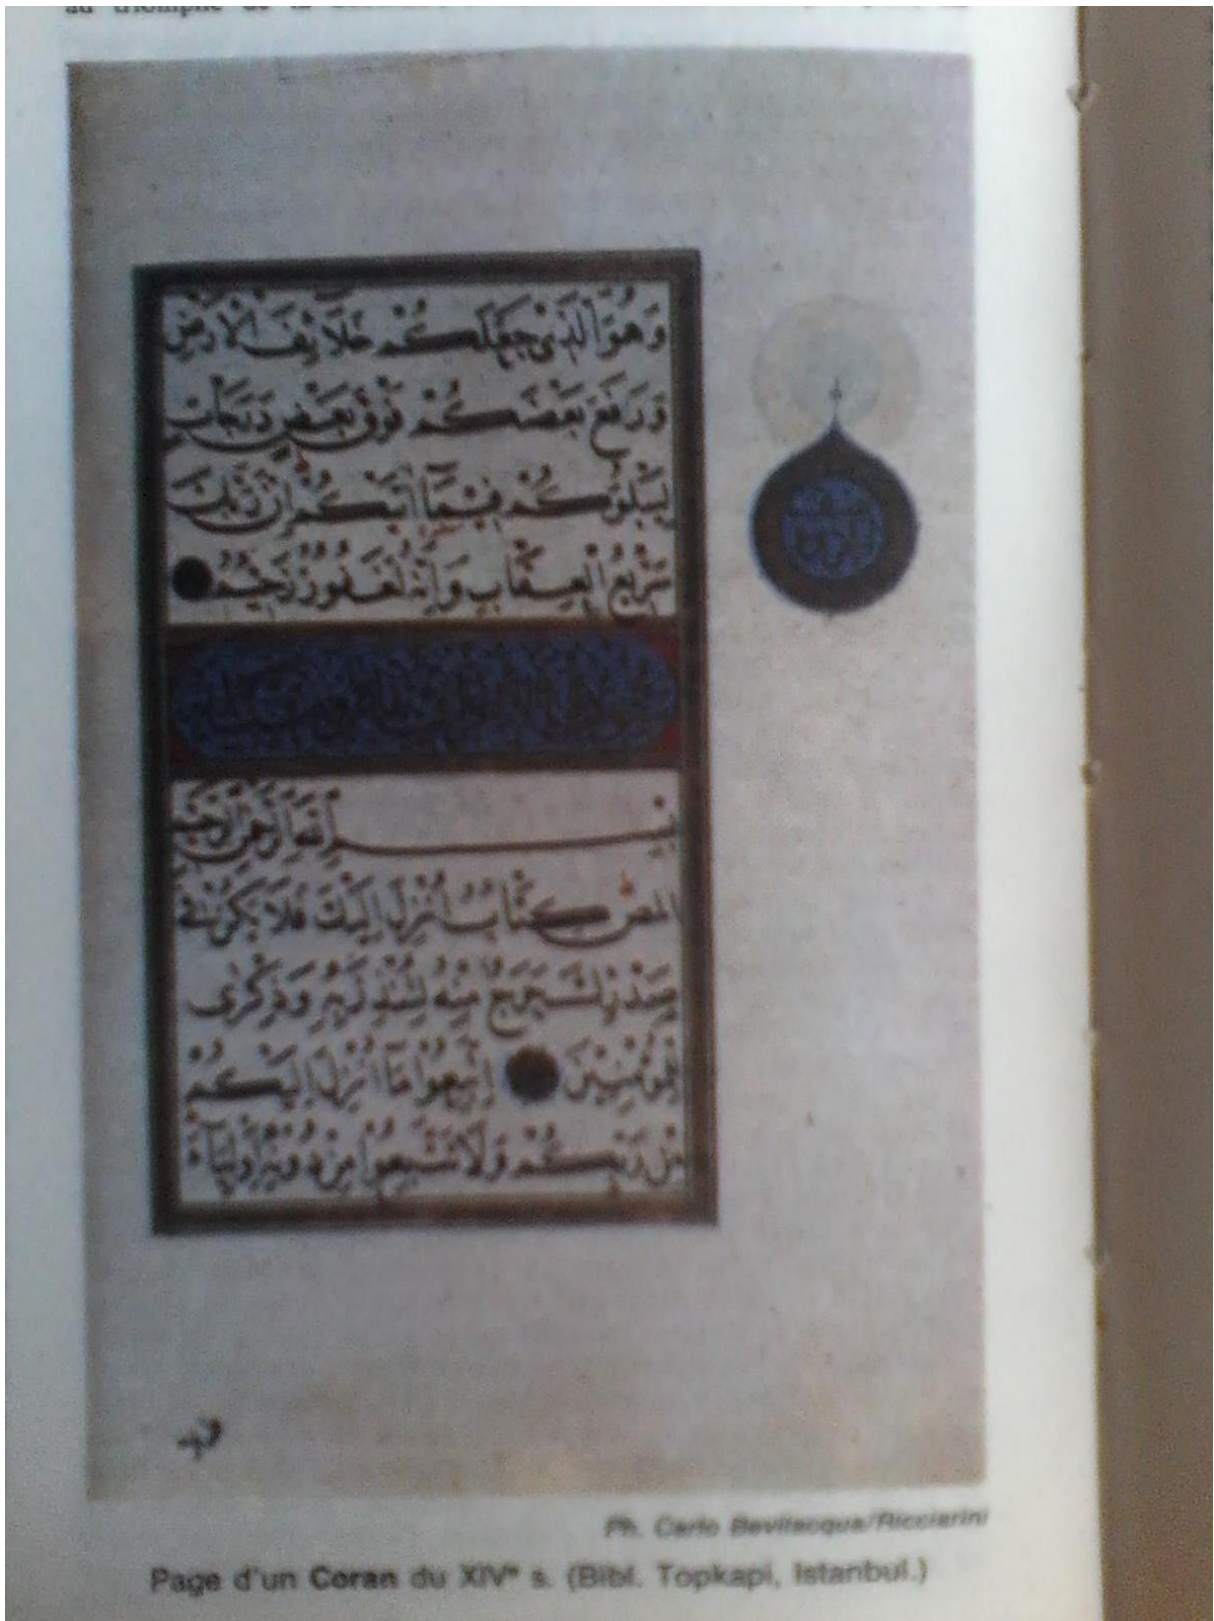 au triomphe de la
وَهُوَ الَّذِي جَعَلَكُمْ خَلَايِفَ الْاَرْضِ
وَرَفَعَ بَعْضَكُمْ فَوْقَ بَعْضٍ دَرَجَاتٍ
لِيَبْلُوَكُمْ فِيْمَا اٰتٰيكُمْ اِنَّ رَبَّكَ
سَرِيْعُ الْعِقَابِ وَاِنَّهُ لَغَفُوْرٌ رَحِيْمٌ
بِسْمِ اللهِ الرَّحْمٰنِ الرَّحِيْمِ
المص كِتَابٌ اُنْزِلَ اِلَيْكَ فَلَا يَكُنْ فِيْ
صَدْرِكَ حَرَجٌ مِنْهُ لِتُنْذِرَ بِهِ وَذِكْرٰى
لِلْمُؤْمِنِيْنَ اِتَّبِعُوْا مَا اُنْزِلَ اِلَيْكُمْ
مِنْ رَبِّكُمْ وَلَا تَتَّبِعُوْا مِنْ دُوْنِهِ اَوْلِيَاءَ
Ph. Carlo Bevilacqua/Ricciarini
Page d'un Coran du XIVᵉ s. (Bibl. Topkapi, Istanbul.)